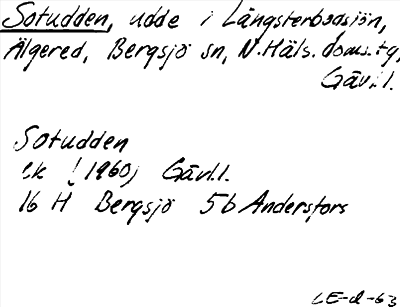 Sotudden, udde i Långsterbodsjön,
Älgered, Bergsjö sn, N.Häls. doms.tg,
Gävl.l.
Sotudden
ek (1960) Gävl.l.
16 H Bergsjö 5b Andersfors
LE-d-63